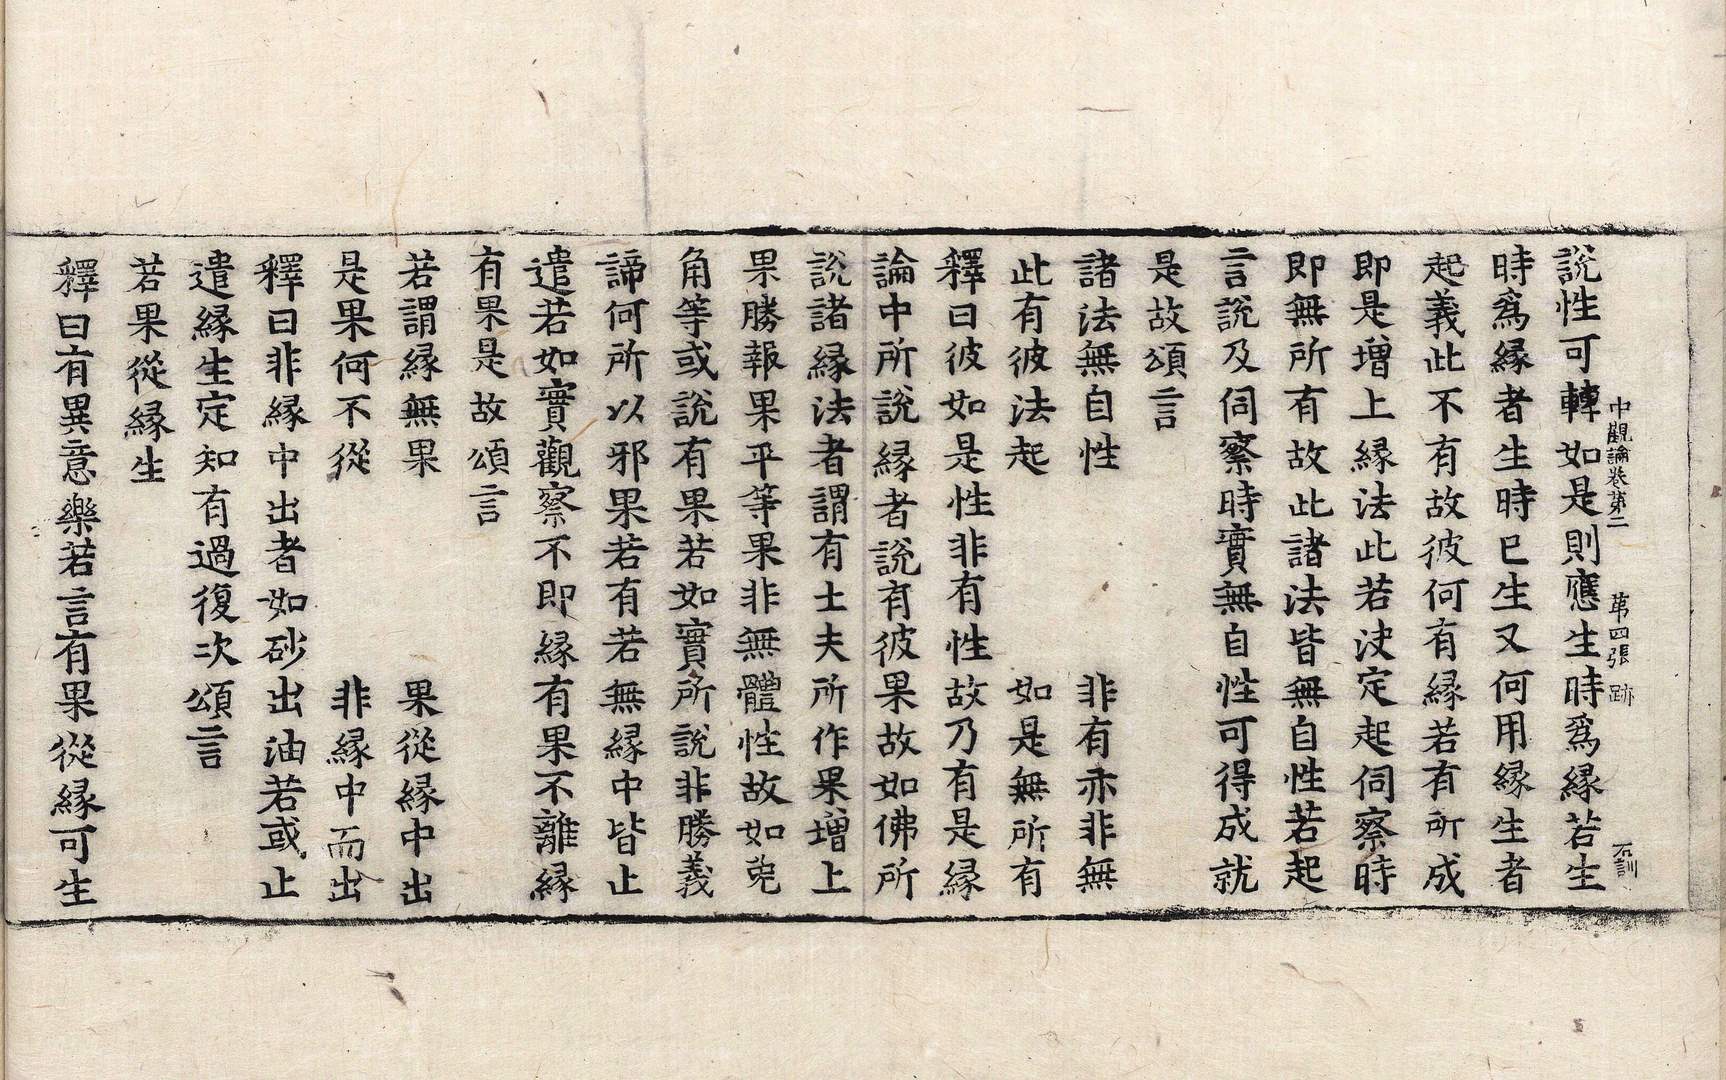 中觀論卷第二　第四張　跡　石訓
說性可轉如是則應生時爲縁若生
時爲縁者生時已生又何用縁生者
起義此不有故彼何有縁若有所成
即是增上縁法此若決定起伺察時
即無所有故此諸法皆無自性若起
言說及伺察時實無自性可得成就
是故頌言
諸法無自性　非有亦非無
此有彼法起　如是無所有
釋曰彼如是性非有性故乃有是縁
論中所說縁者說有彼果故如佛所
說諸縁法者謂有士夫所作果增上
果勝報果平等果非無體性故如兎
角等或說有果若如實所說非勝義
諦何所以邪果若有若無縁中皆止
遣若如實觀察不即縁有果不離縁
有果是故頌言
若謂縁無果　果從縁中出
是果何不從　非縁中而出
釋曰非縁中出者如砂出油若或止
遣縁生定知有過復次頌言
若果從縁生
釋曰有異意樂若言有果從縁可生